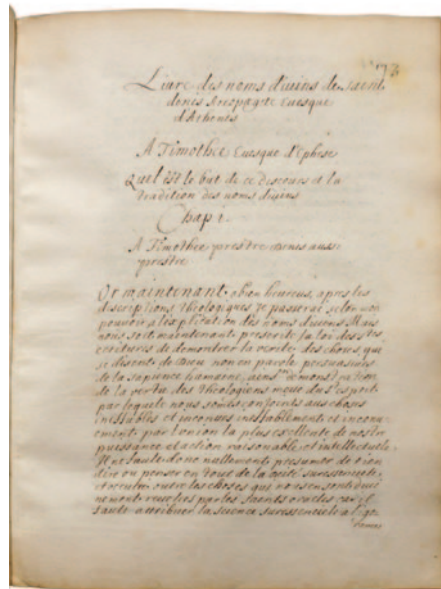 173
Livre des noms divins de saint
denes Areopagite Evesque
d'Athenes
A Timothee Evesque d'Ephese
Quel est le but de ce discours et la
tradition des noms divins
Chap 1.
A Timothee prestre denes aussi
prestre
Or maintenant o bien heureus, apres les
descriptions theologiques je passerai selon mon
pouvoir a l'esplication des noms divins Mais
nous soit maintenant prescrite la loi des stes
ecritures de demontrer la verite des choses, qui
se disent de dieu non en parole persuasive
de la sapience humaine, ains en demonstration
de la vertu des Theologiens meue de l'esprit
par laquele nous somes conjoints aus choses
ineffables et inconues ineffablement et inconu-
ement par l'union la plus excellente de nostre
puissance et action raisonable, et intellectuele
Il ne faut donc nullement presumer de rien
dire ou penser en tout de la suressenciele
et occulte outre les choses qui nous en sont divi
nement revelees par les saints oracles car il
faut attribuer la science suressenciele a l'igno